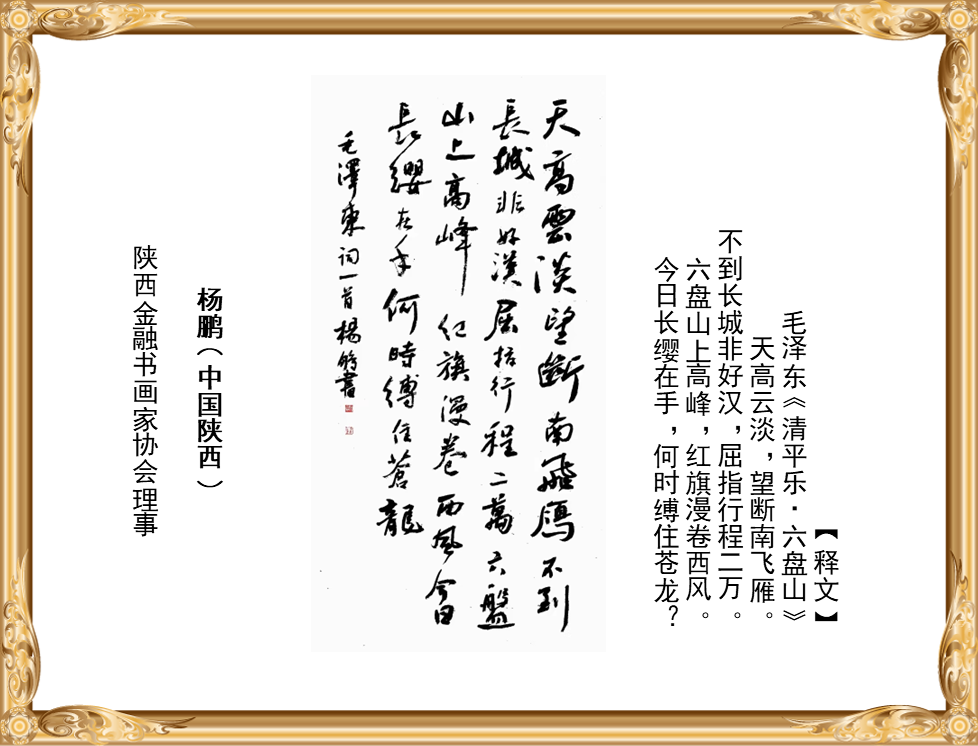 【释文】
毛泽东《清平乐·六盘山》
天高云淡，望断南飞雁。
不到长城非好汉，屈指行程二万。
六盘山上高峰，红旗漫卷西风。
今日长缨在手，何时缚住苍龙？
天高雲淡望斷南飛鴈不到
長城非好漢屈指行程二萬六盤
山上高峰红旗漫卷西風今日
長纓在手何時縛住蒼龍
毛澤東词一首楊鹏書
杨鹏（中国陕西）
陕西金融书画家协会理事